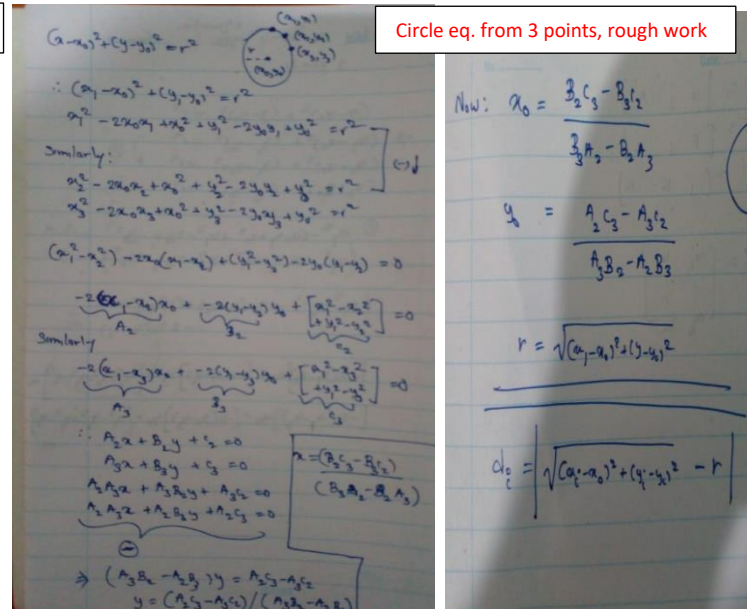 Circle eq. from 3 points, rough work
(x-x₀)²+(y-y₀)²=r²
(x₁,y₁)
(x₂,y₂)
(x₃,y₃)
r
(x₀,y₀)
∴ (x₁-x₀)²+(y₁-y₀)²=r²
x₁² - 2x₀x₁ + x₀² + y₁² - 2y₀y₁ + y₀² = r²
Similarly:
(-)↓
x₂² - 2x₀x₂ + x₀² + y₂² - 2y₀y₂ + y₀² = r²
x₃² - 2x₀x₃ + x₀² + y₃² - 2y₀y₃ + y₀² = r²
(x₁²-x₂²) - 2x₀(x₁-x₂) + (y₁²-y₂²) - 2y₀(y₁-y₂) = 0
-2(x₁-x₂)x₀ + -2(y₁-y₂)y₀ + [x₁²-x₂² +y₁²-y₂²] = 0
A₂ B₂ C₂
Similarly
-2(x₁-x₃)x₀ + -2(y₁-y₃)y₀ + [x₁²-x₃² +y₁²-y₃²] = 0
A₃ B₃ C₃
∴ A₂x + B₂y + C₂ = 0
A₃x + B₃y + C₃ = 0
A₂A₃x + A₃B₂y + A₃C₂ = 0
A₂A₃x + A₂B₃y + A₂C₃ = 0
x = (B₂C₃ - B₃C₂)
(B₃A₂ - B₂A₃)
(-)
⇒ (A₃B₂ - A₂B₃)y = A₂C₃ - A₃C₂
y = (A₂C₃ - A₃C₂)/(A₃B₂ - A₂B₃)
Now: x₀ = B₂C₃ - B₃C₂
B₃A₂ - B₂A₃
y₀ = A₂C₃ - A₃C₂
A₃B₂ - A₂B₃
r = √(x₁-x₀)²+(y-y₀)²
dᵢ = |√(xᵢ-x₀)²+(yᵢ-y₀)² - r|